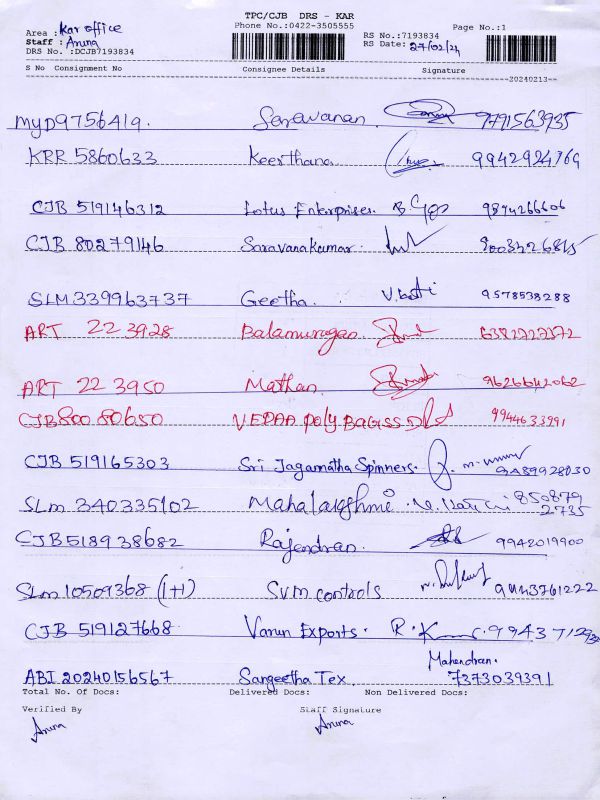 TPC/CJB DRS - KAR
Area : Kar office Phone No.:0422-3505555 Page No.:1
Staff : Aruna RS No.:7193834
DRS No. :DCJB7193834 RS Date: 27/02/24
S No Consignment No Consignee Details Signature
20240213
MYD9756419. Saravanan 9791563935
KRR 5860633 Keerthana 9942924769
CJB 519146312 Lotus Enterprises. 9874266606
CJB 80279146 Saravanakumar.
SLM 339963737 Geetha. 9578538288
ART 223928 Balamurugan 6382222372
ART 223950 Mathan 9626642062
CJB 80080650 VEDAA Poly BAGSS 9944633991
CJB 519165303 Sri Jaganatha Spinners. 9489928030
SLM 340335102 Mahalakshmi 850879
2735
CJB 518938682 Rajendran. 9942019900
SLM 10509368 (1+1) SVM controls 9443761222
CJB 519127668 Varun Exports.
Mahendran.
ABI 20240156567 Sangeetha Tex. 7373039391
Total No. Of Docs: Delivered Docs: Non Delivered Docs:
Verified By Staff Signature
Aruna Aruna